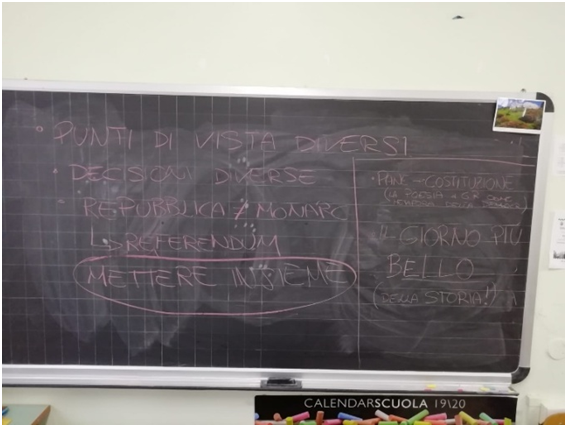 • PUNTI DI VISTA DIVERSI
• DECISIONI DIVERSE
• REPUBBLICA / MONARC
↳ REFERENDUM
METTERE INSIEME
• PANE → COSTITUZIONE
(LA POESIA
IL GIORNO PIÙ
BELLO
(DELLA STORIA!!)
CALENDARSCUOLA 19\20